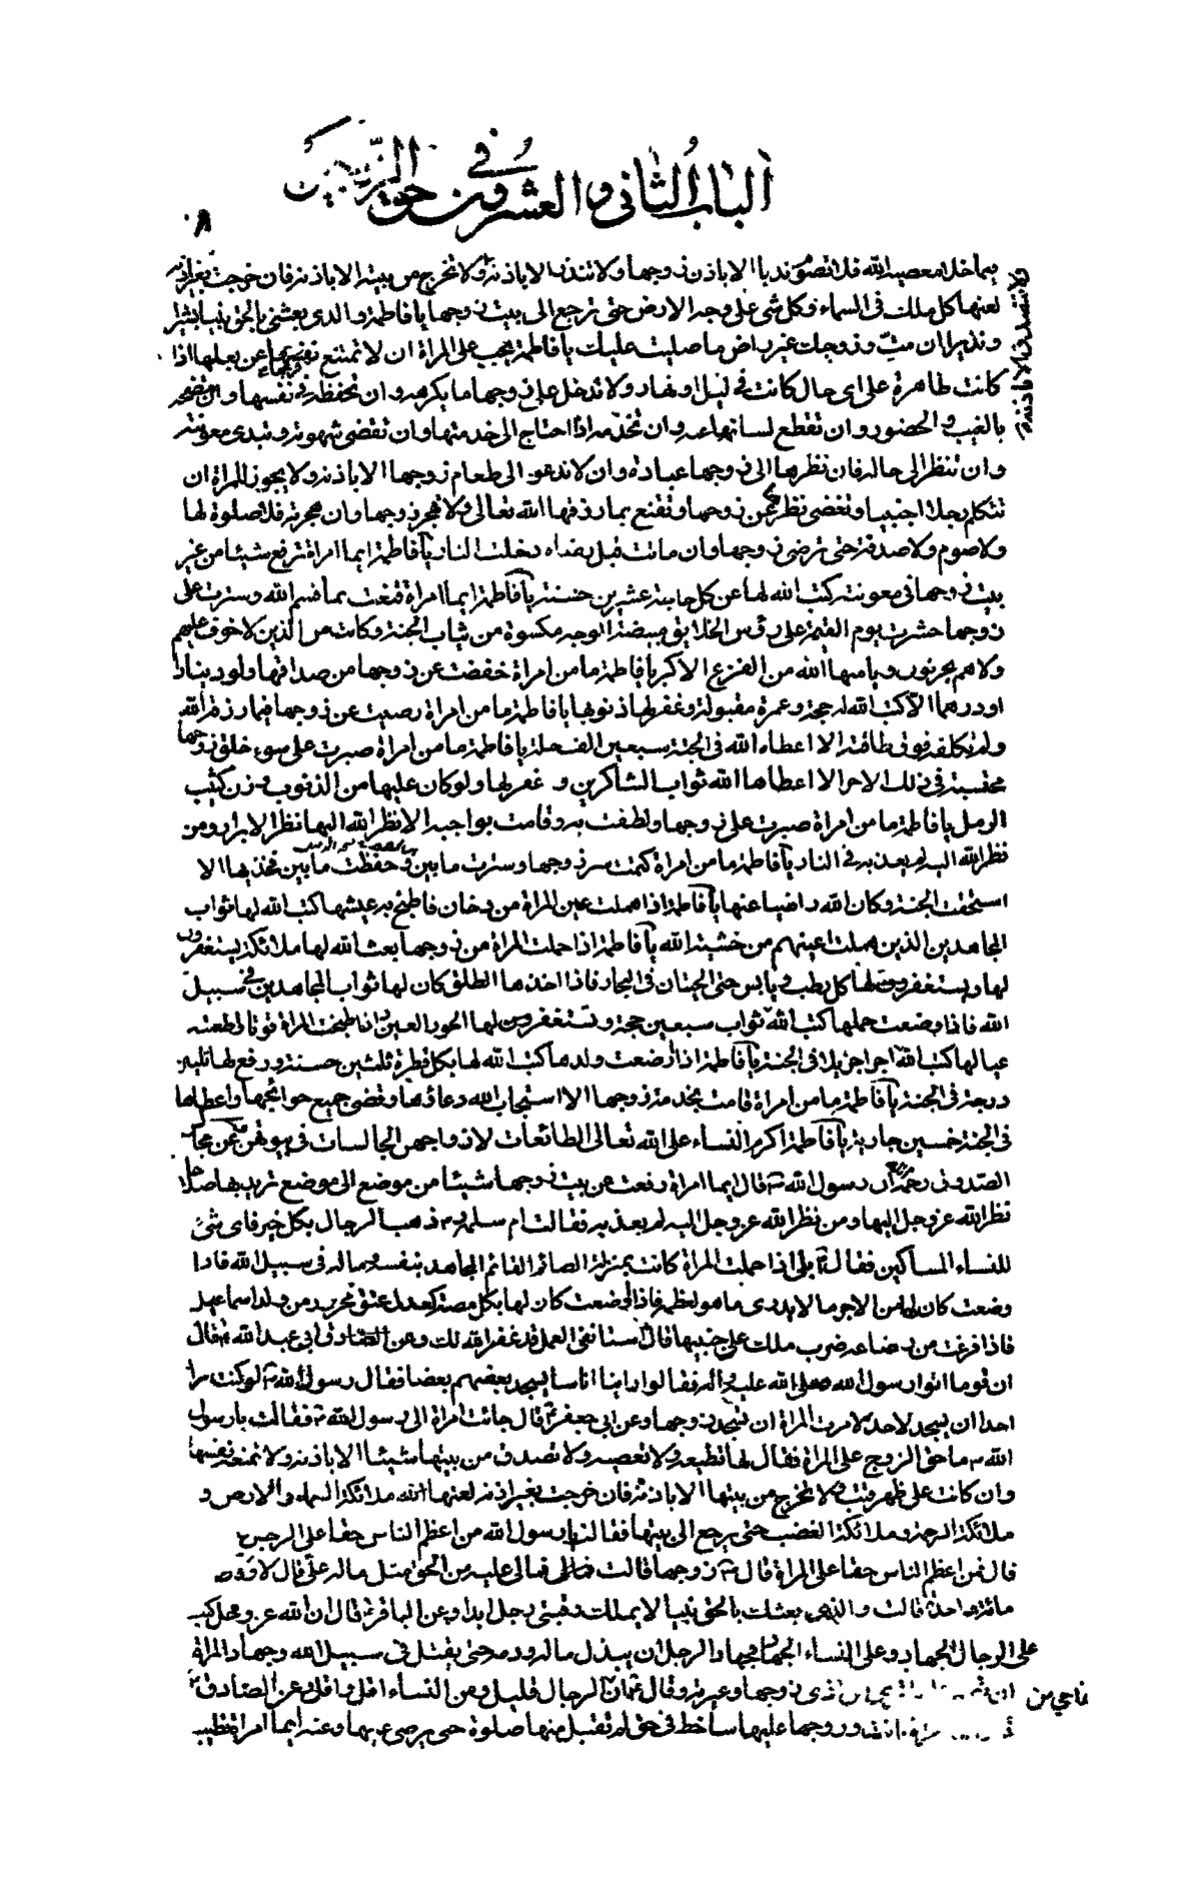 الباب الثاني والعشرون في حق الزوجين
بما خلا معصية الله فلا تصوم ندبا الا باذن زوجها ولا تنذر الا باذنه ولا تخرج من بيته الا باذنه فان خرجت بغير اذنه
لعنها كل ملك في السماء وكل شئ على وجه الارض حتى ترجع الى بيت زوجها يا فاطمة والذى بعثني بالحق نبيا بشيرا
ونذيرا ان مت وزوجك غير راض ما صليت عليك يا فاطمة يجب على المراة ان لا تمتنع نفسها عن بعلها اذا
كانت طاهرة على اى حال كانت في ليل او نهار ولا تدخل على زوجها ما يكرهه وان تحفظه في نفسها
بالغيب والحضور وان تقطع لسانها عنه وان تخدمه اذا احتاج الى خدمتها وان تقضى شهوته وتبدى معونته
وان تنظر الى حاله فان نظرها الى زوجها عبادة وان لا تدعو الى طعام زوجها الا باذنه ولا يجوز للمراة ان
تتكلم رجلا اجنبيا وتغضى نظرها عن زوجها وتقنع بما رزقها الله تعالى ولا تهجر زوجها وان هجرته فلا صلوة لها
ولا صوم ولا صدقة حتى ترضى زوجها وان ماتت قبل رضاه دخلت النار يا فاطمة ايما امراة ترفع شيئا من غير
بيت زوجها في معونته كتب الله لها عن كل حاجة عشرين حسنة يا فاطمة ايما امراة قنعت بما قسم الله وسترت على
زوجها حشرت يوم القيمة على رؤس الخلايق مبيضة الوجه مكسوة من ثياب الجنة وكانت من الذين لا خوف عليهم
ولا هم يحزنون ويامنها الله من الفزع الاكبر يا فاطمة ما من امراة خفضت عن زوجها من صداقها ولو دينارا
او درهما الا كتب الله له حجة وعمرة مقبولة وغفر لها ذنوبها يا فاطمة ما من امراة رضيت عن زوجها فيما رزقه الله
ولم تكلفه فوق طاقته الا اعطاه الله في الجنة سبعين الف حلة يا فاطمة ما من امراة صبرت على سوء خلق زوجها
محتسبة في ذلك الاجر الا اعطاها الله ثواب الشاكرين وغفر لها ولو كان عليها من الذنوب وزن كثيب
الرمل يا فاطمة ما من امراة صبرت على زوجها ولطفت به وقامت بواجبه الا نظر الله اليها نظر الابرار ومن
نظر الله اليه لم يعذبه في النار يا فاطمة ما من امراة كتمت سر زوجها وسترت ما بين وحفظت ما بين فخذيها الا
استحقت الجنة وكان الله راضيا عنها يا فاطمة اذا هملت عين المراة من دخان فاطبخ به عيشها كتب الله لها ثواب
المجاهدين الذين هملت اعينهم من خشية الله يا فاطمة اذا حملت المراة من زوجها بعث الله لها ملائكة يستغفرون
لها ويستغفرون لها كل رطب ويابس حتى الحيتان في البحار فاذا اخذها الطلق كان لها ثواب المجاهدين في سبيل
الله فاذا وضعت حملها كتب الله ثواب سبعين حجة وتستغفرون لها الحور العين اذا طبخت المراة قوتا لطعمة
عيالها كتب الله اجرا جزيلا في الجنة يا فاطمة اذا ارضعت ولدها كتب الله لها بكل قطرة ثلثين حسنة ورفع لها ثلثين
درجة في الجنة يا فاطمة ما من امراة قامت بخدمة زوجها الا استجاب الله دعاؤها وقضى جميع حوائجها واعطاها
في الجنة خمسين جارية يا فاطمة اكرم النساء على الله تعالى الطائعات لازواجهن الجالسات في بيوتهن
الصدوق رحمه ان رسول الله ص قال ايما امراة رفعت من بيت زوجها شيئا من موضع الى موضع تريد بها صلاحا
نظر الله عز وجل اليها ومن نظر الله عز وجل اليه لم يعذبه فقالت ام سلمة ذهب الرجال بكل خير فاى شئ
للنساء المساكين فقال بلى اذا حملت المراة كانت بمنزلة الصائم القائم المجاهد بنفسه وماله في سبيل الله فاذا
وضعت كان لها من الاجر ما لا يدرى ما هو لعظمه فاذا ارضعت كان لها بكل مصة كعدل عتق محرر من ولد اسماعيل
فاذا فرغت من رضاعه ضرب ملك على جنبيها قال استانفى العمل قد غفر الله لك وعن الصادق ابي عبد الله ع قال
ان قوما اتوا رسول الله صلى الله عليه واله فقالوا راينا اناسا يسجد بعضهم بعضا فقال رسول الله ص لو كنت امرا
احدا ان يسجد لاحد لامرت المراة ان تسجد زوجها وعن ابي جعفر ع قال جائت امراة الى رسول الله ص فقالت يا رسول
الله ص ما حق الزوج على المراة فقال لها تطيعه ولا تعصيه ولا تصدق من بيتها شيئا الا باذنه ولا تمنعه نفسها
وان كانت على ظهر قتب ولا تخرج من بيتها الا باذنه فان خرجت بغير اذنه لعنها الله ملائكة السماء والارض و
ملائكة الرحمة وملائكة الغضب حتى يرجع الى بيتها فقالت يا رسول الله من اعظم الناس حقا على الرجل
قال فمن اعظم الناس حقا على المراة قال ص زوجها قالت فمالى عليه من الحق مثل ماله على قال لا
مائة واحدة قالت والذي بعثك بالحق نبيا لا يملك رقبتى رجل ابدا وعن الباقر ع قال ان الله عز وجل كتب
على الرجال الجهاد وعلى النساء الجهاد فجهاد الرجل ان يبذل ماله ودمه حتى يقتل في سبيل الله وجهاد المراة
ان تصبر اذى زوجها وغيرته وقال الرجال قليل ومن النساء اقل واقل وعن الصادق ع
وزوجها عليها ساخط في حق لم تقبل منها صلوة حتى يرضى عنها وعنه ايما امراة تطيب
ناجى من